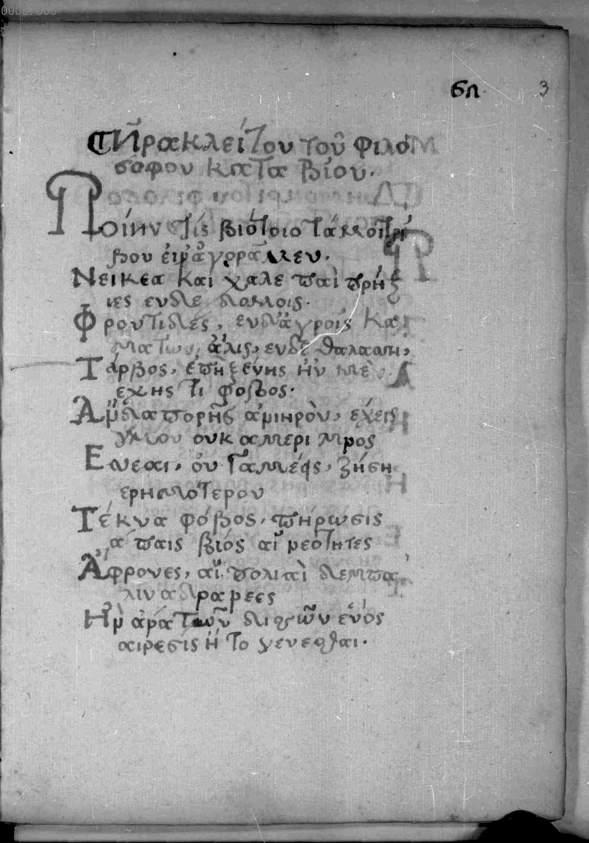 3
Ἡρακλείτου τοῦ φιλο
σόφου κατα βίου.
Ποίην τίς βιότοιο τάμοι τρί
βου εἰν ἀγορᾶ μεν.
Νείκεα καί χαλε παὶ πρήξ
ιες ενδε δομοις.
Φροντιδές, ενδ ἀγροίς κα
ματων ἁλις, ενδε θαλασση,
Τάρβος, ἐπὶ ξείνης ἠν μεν
εχης τι φόβος.
Ἀμ δ απορῆς ἀνιηρὸν, ἐχεις
γάμον ουκ αμερι μνος
Εσεαι, ου γαμέεις, ζήση
ερημοτερον
Τέκνα φόβος, πήρωσις
ἀ παις βιός αἱ νεότητες
Ἀφρονες, αἱ πολιαὶ δεμπα
λιν αδρανεες
Ην ἀρα των δισσῶν ενός
αιρεσις ἠ το γενεσθαι.